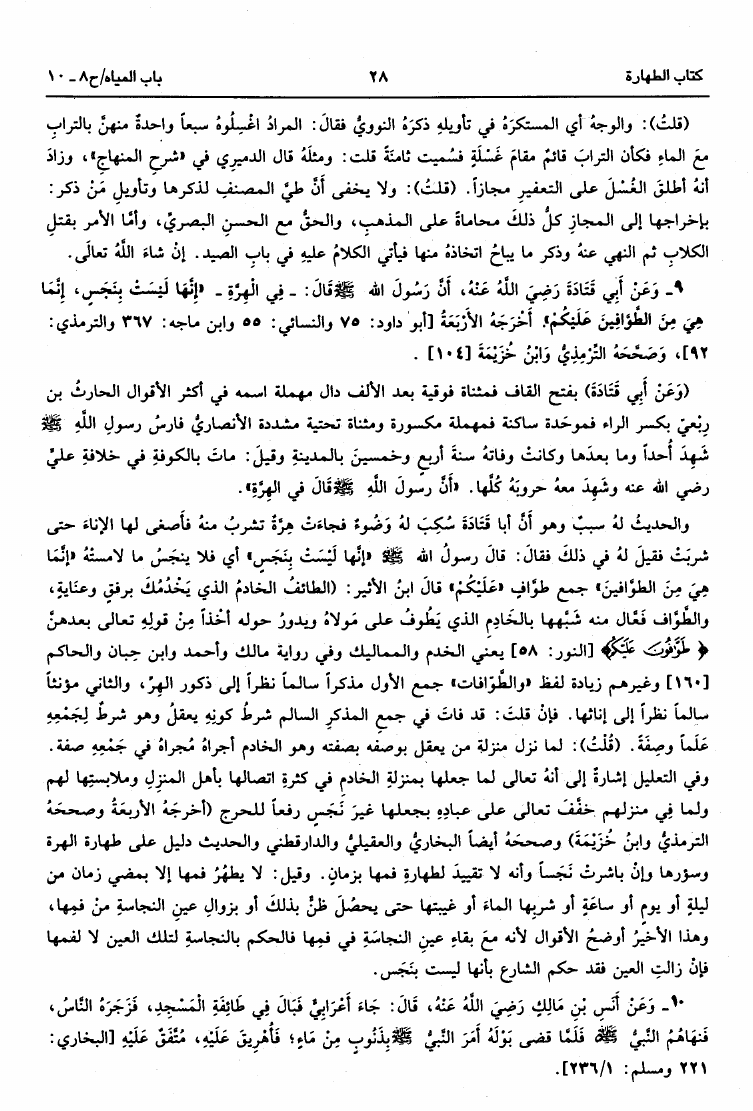 كتاب الطهارة ٢٨ باب المياه/ح٨ ـ ١٠
(قلتُ): والوجهُ أي المستكرَهُ في تأويلهِ ذكرَهُ النوويُّ فقالَ: المرادُ اغْسِلُوهُ سبعاً واحدةٌ منهنَّ بالترابِ
معَ الماءِ فكأن الترابَ قائمٌ مقامَ غَسْلَةٍ فسُميت ثامنَةٌ قلت: ومثلَهُ قال الدميري في «شرحِ المنهاجِ»، وزادَ
أنهُ أطلقَ الغُسْلَ على التعفيرِ مجازاً. (قلتُ): ولا يخفى أنَّ طيَّ المصنفِ لذكرها وتأويلِ مَنْ ذكر:
بإخراجِها إلى المجازِ كلُّ ذلكَ محاماةً على المذهبِ، والحقُّ مع الحسنِ البصريِّ، وأمَّا الأمر بقتلِ
الكلابِ ثم النهي عنهُ وذكر ما يباحُ اتخاذهُ منها فيأتي الكلامُ عليهِ في بابِ الصيد. إنْ شاءَ اللَّهُ تعالَى.
٩ـ وَعَنْ أَبِي قَتَادَةَ رَضِيَ اللَّهُ عَنْهُ، أَنَّ رَسُولَ الله ﷺ قَالَ: ـ فِي الْهِرَّةِ ـ «إِنَّهَا لَيْسَتْ بِنَجَسٍ، إِنَّمَا
هِيَ مِنَ الطَّوَّافِينَ عَلَيْكُمْ». أَخْرَجَهُ الأَرْبَعَةُ [أبو داود: ٧٥ والنسائي: ٥٥ وابن ماجه: ٣٦٧ والترمذي:
٩٢]، وَصَحَّحَهُ التِّرْمِذِيُّ وَابْنُ خُزَيْمَةَ [١٠٤] .
(وَعَنْ أَبِي قَتَادَةَ) بفتح القاف فمثناة فوقية بعد الألف دال مهملة اسمه في أكثر الأقوال الحارثُ بن
رِبْعيّ بكسر الراء فموحَدة ساكنة فمهملة مكسورة ومثناة تحتية مشددة الأنصاريُّ فارسُ رسولِ اللَّهِ ﷺ
شَهِدَ أُحداً وما بعدَها وكانتْ وفاتهُ سنةَ أربعٍ وخمسينَ بالمدينةِ وقيلَ: ماتَ بالكوفةِ في خلافةِ عليٍّ
رضي الله عنه وشَهِدَ معهُ حروبَهُ كُلَّها. «أَنَّ رسولَ اللَّهِ ﷺ قَالَ في الهِرَّةِ».
والحديثُ لهُ سببٌ وهو أَنَّ أبا قَتَادَةَ سُكِبَ لهُ وَضُوءٌ فجاءَتْ هِرَّةٌ تشربُ منهُ فأصغى لها الإناءَ حتى
شربَتْ فقيلَ لهُ في ذلكَ فقالَ: قالَ رسولُ الله ﷺ «إِنَّها لَيْسَتْ بِنَجَسٍ» أي فلا ينجسُ ما لامستْهُ «إِنَّمَا
هِيَ مِنَ الطوَّافينَ» جمع طوَّافٍ «عَلَيْكُمْ» قالَ ابنُ الأثير: (الطائفُ الخادمُ الذي يَخْدُمُكَ برفقٍ وعنايةٍ،
والطَّوَّاف فَعَّال منه شبَّهها بالخَادِمِ الذي يَطُوفُ على مَولاهُ ويدورُ حوله أخْذاً مِنْ قولهِ تعالى بعدهنَّ
﴿ طَوَّفُونَ عَلَيْكُم ﴾ [النور: ٥٨] يعني الخدم والمماليك وفي رواية مالك وأحمد وابن حِبان والحاكم
[١٦٠] وغيرهم زيادة لفظ «والطَّوّافات» جمع الأول مذكراً سالماً نظراً إلى ذكور الهِرِّ، والثاني مؤنثاً
سالماً نظراً إلى إناثها. فإنْ قلتَ: قد فاتَ في جمعِ المذكرِ السالم شرطُ كونِهِ يعقلُ وهو شرطٌ لِجَمْعِهِ
عَلَماً وصِفَةً. (قُلْتُ): لما نزل منزلةَ من يعقل بوصفه بصفته وهو الخادم أجراهُ مُجراهُ في جَمْعِهِ صفة.
وفي التعليلِ إشارةٌ إلى أنهُ تعالى لما جعلها بمنزلةِ الخادمِ في كثرةِ اتصالها بأهلِ المنزلِ وملابستِها لهم
ولما في منزلهم خفَّفَ تعالى على عبادِهِ بجعلها غيرَ نَجَسٍ رفعاً للحرج (أخرجَهُ الأربعَةُ وصححَهُ
الترمذيُّ وابنُ خُزَيْمَةَ) وصححَهُ أيضاً البخاريُّ والعقيليُّ والدارقطني والحديث دليل على طهارة الهرة
وسؤرها وإنْ باشرتْ نَجَساً وأنه لا تقييدَ لطهارةِ فمها بزمانٍ. وقيل: لا يطهُرُ فمها إلا بمضي زمان من
ليلةٍ أو يومٍ أو ساعَةٍ أو شربِها الماءَ أو غيبتِها حتى يحصُلَ ظنٌّ بذلكَ أو بزوالِ عينِ النجاسةِ منْ فمِها،
وهذا الأخيرُ أوضحُ الأقوالِ لأنه معَ بقاءِ عينِ النجاسَةِ في فمِها فالحكم بالنجاسةِ لتلك العين لا لفمها
فإنْ زالتِ العين فقد حكم الشارع بأنها ليست بنَجَس.
١٠ـ وَعَنْ أَنَسِ بْنِ مَالِكٍ رَضِيَ اللَّهُ عَنْهُ، قَالَ: جَاءَ أَعْرَابِيٌّ فَبَالَ فِي طَائِفَةِ الْمَسْجِدِ، فَزَجَرَهُ النَّاسُ،
فَنَهَاهُمُ النَّبِيُّ ﷺ فَلَمَّا قضى بَوْلَهُ أَمَرَ النَّبِيُّ ﷺ بِذَنُوبٍ مِنْ مَاءٍ؛ فَأُهْرِيقَ عَلَيْهِ، مُتَّفَقٌ عَلَيْهِ [البخاري:
٢٢١ ومسلم: ٢٣٦/١].